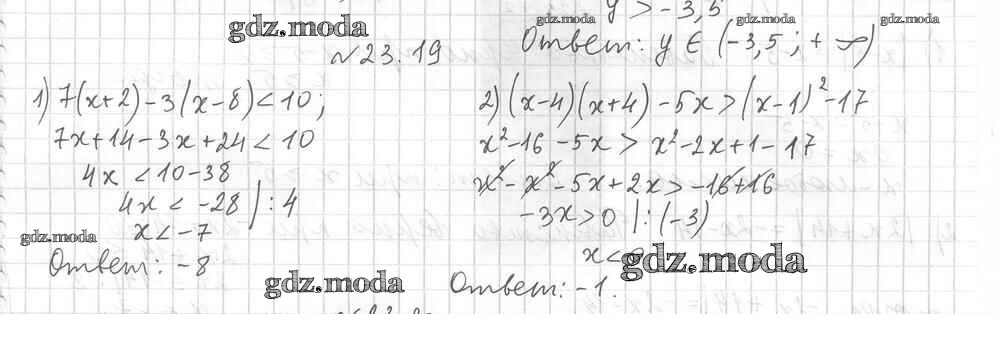 y > -3,5
gdz.moda gdz.moda gdz.moda gdz.moda
Ответ: y ∈ (-3,5 ; + ∞)
№23.19
1) 7(x+2)-3(x-8)<10;
7x+14-3x+24<10
4x<10-38
4x<-28 | :4
x<-7
Ответ: -8
2) (x-4)(x+4)-5x>(x-1)²-17
x²-16-5x>x²-2x+1-17
x²-x²-5x+2x>-16+16
-3x>0 |:(-3)
x<
Ответ: -1.
gdz.moda
gdz.moda
gdz.moda